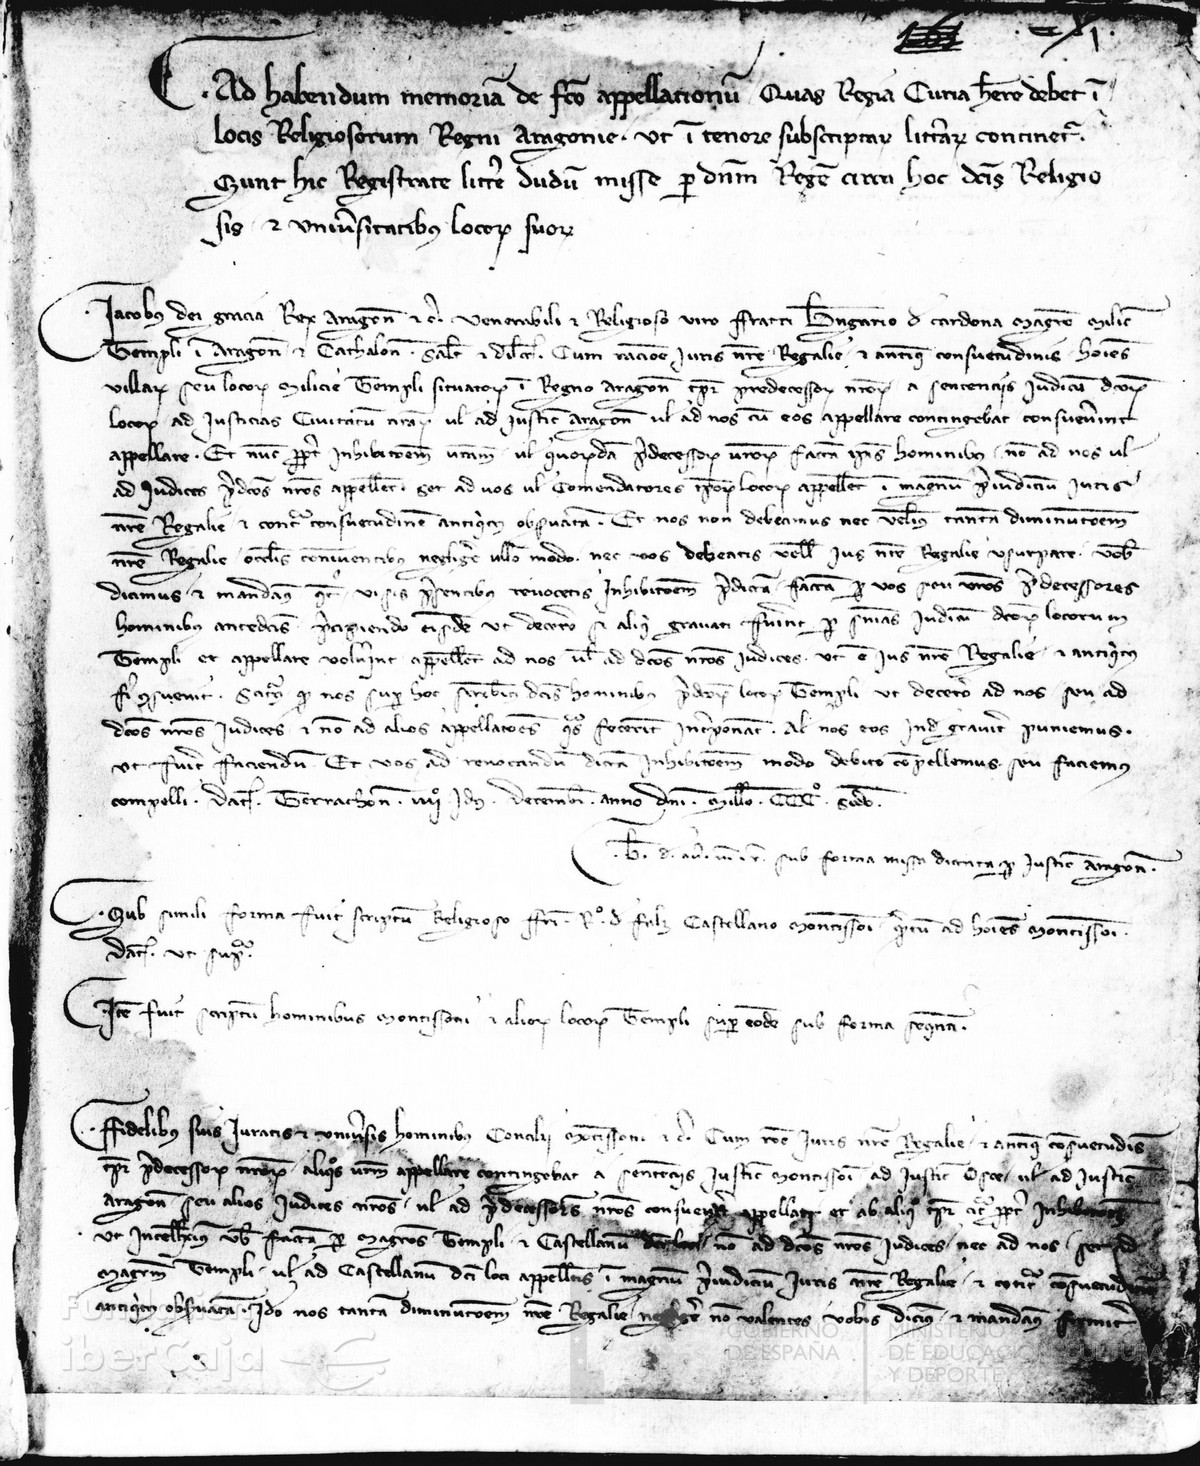 · Ad habendum memoriã de fco appellacionũ Quas Regia Curia hẽre debet ĩ
locis Religiosorum Regni Aragonie · ut ĩ tenore subscriptar litt̃ar continet̃ ·
Sunt hic Registrate litt̃e dudũ misse p dnm̃ Regẽ circa hoc dcis Religio
sis · & uniṽsitatibus locor suor
Jacobus dei gracia Rex Aragon̄ &c̃ · Venerabili & Religioso viro ffratri Bñgario d Cardona Magr̃o Milic̃
Templi ĩ Aragon̄ & Cathalon̄ · Salt̃ & dilcc̃ · Cum racione Juris nr̃e Regalie · & antiq̃ consuetudinis hoĩes
villar seu locor Milicie Templi situator ĩ Regno Aragon̄ tp̃r predecessor nr̃or a sentenciis Judicũ dcor
locor ad Justicias Civitatũ nr̃ar vl ad Justic̃ Aragon̄ vl ad nos cũ eos appellare contingebat consueṽint
appellare · Et nũc ppt̃ Inhibitõem ur̃am vl quorũdã p̃decessor ur̃or factã ip̃is hominibus nõ ad nos vl
ad Judices p̃dcõs nr̃os appellẽt · set ad vos vl Comendatores ip̃or locor appellẽt ĩ magnũ p̃iudiciũ Juris
nr̃e Regalie · & contr̃ consuetudinẽ antiq̃tus obs̃vatã · Et nos non debeamus nec velim̃ tantã diminutõem
nr̃e Regalie oc̃lis conniventibus negligẽ ullo modo · nec vos debeatis vell̃ Jus nr̃e Regalie usurpare · vob̃
dicimus & mandam̃ qt̃ visis p̃sentibus revocetis Inhibitõem p̃dictã factã p vos seu vr̃os p̃decessores
hominibus antedcis p̃cipiendo eisdẽ ut decet̃o si aliq̃ gravati fuerint p sn̄ias Judicũ dcor locorum
Templi et appellare volṽint appellẽt ad nos vl ad dcõs nr̃os Judices · ut ẽ Jus nr̃e Regalie · & antiq̃tus
fi᷑i consuevit · Scit̃ q nos sup hoc scribim̃ dcis hominibus p̃dcor locor Templi ut decet̃o ad nos seu ad
dcõs nr̃os Judices & nõ ad alios appellatões q̃s fecerit Int̃ponãt · Al̃ nos eos Inde gravit̃ puniemus ·
ut fuit̃ faciendũ · Et vos ad revocandũ dictã Inhibitõem modo debito cõpellemus · seu faciemus
compelli · Dat̃ · Terrachon̄ · iiii · Idus · Decembr̃ · anno dnĩ · Millo · CCC° ·
sub forma missa dictata p Justic̃ Aragon̄ ·
· Sub simili forma fuit scriptũ Religioso ffrĩ · R° · d Castellano Montissoñ · quantũ ad hoĩes Montissoñ ·
Dat̃ · ut supr̃ ·
· Itẽ fuit scriptũ hominibus Montissoni & alior locor Templi sup eodẽ sub forma sequẽti ·
· ffidelibus suis Juratis & uniṽsis hominibus Concilii Mõtissoni · &c̃ · Cum rõe Juris nr̃e Regalie · & antiq̃ cõsuetudis
tp̃r p̃decessor nr̃or aliq̃s ur̃m appellare contingebat a sentẽciis Justic̃ Montissoñ ad Justic̃ Osce · vl ad Justic̃
Aragon̄ seu alios Judices nr̃os · vl ad p̃decessores nr̃os consueṽit appellare et ab aliq̃ tp̃r cit̃ ppt̃ Inhibitõem
ut Intellexim̃ vob̃ factã p Magr̃os Templi · & Castellanũ dcĩ loci nõ ad dcõs nr̃os Judices · nec ad nos · set ad
Magr̃m Templi · vl ad Castellanũ dcĩ loci appellẽtis ĩ magnũ p̃iudiciũ Juris nr̃e Regalie · & contr̃ cõsuetudinẽ
antiq̃tus obs̃vatã · Ido nos tantã diminutõem nr̃e Regalie nõ valentes vobis dicim̃ · & mandam̃ firmit̃
Fundación
iberCaja
GOBIERNO
DE ESPAÑA
MINISTERIO
DE EDUCACIÓN, CULTURA
Y DEPORTE